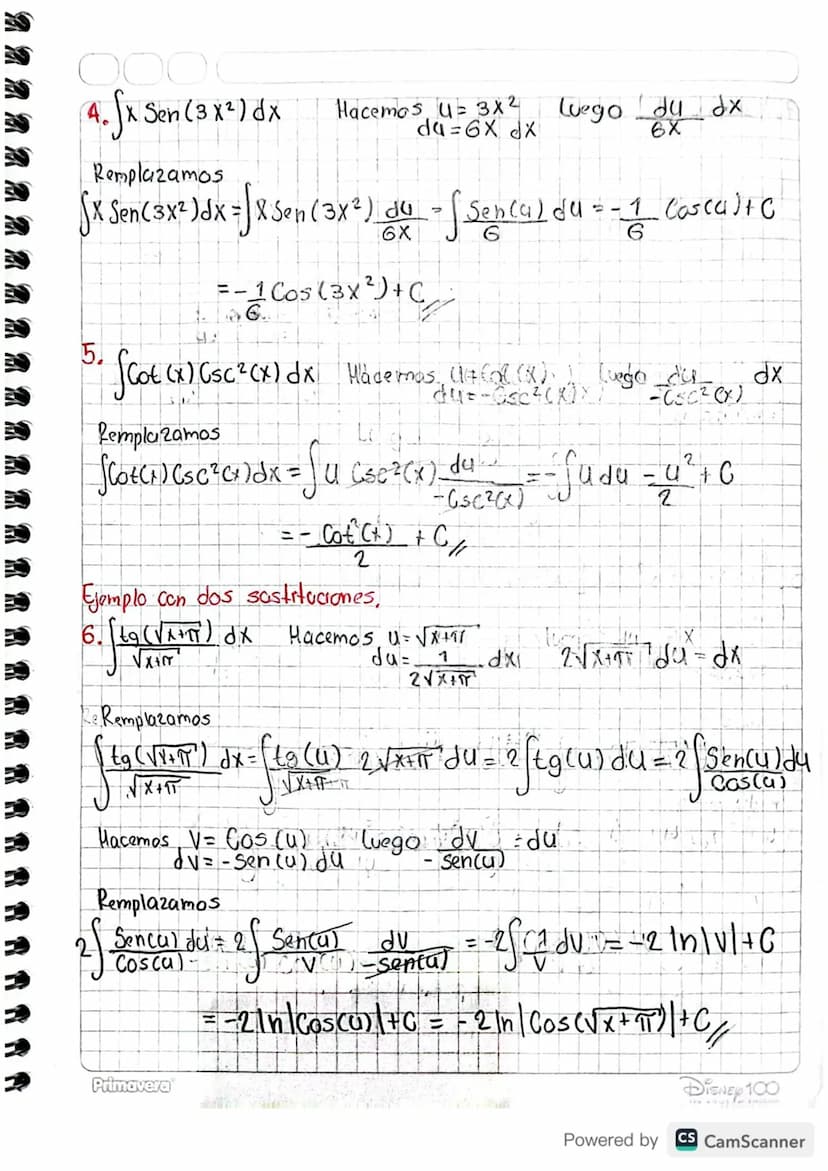 4. ∫x Sen(3x²)dx Hacemos u=3x² luego du/6x dx
du=6x dx
Remplazamos
∫x Sen(3x²)dx = ∫x Sen(3x²) du/6x = ∫Sen(u)/6 du = -1/6 Cos(u)+C
= -1/6 Cos(3x²)+C //
5. ∫Cot(x) Csc²(x) dx Hacemos u=Cot(x) luego du/-Csc²(x) dx
du=-Csc²(x)
Remplazamos
∫Cot(x) Csc²(x)dx = ∫u Csc²(x) du/-Csc²(x) = -∫u du = u²/2 + C
= - Cot²(x)/2 + C //
Ejemplo con dos sostituciones.
6. ∫tg(√x+π)/√x+π dx Hacemos u=√x+π
du= 1/2√x+π dx 2√x+π du = dx
Remplazamos
∫tg(√x+π)/√x+π dx = ∫tg(u)/√x+π 2√x+π du = 2∫tg(u) du = 2∫Sen(u)du/Cos(u)
Hacemos V= Cos(u) luego dv/-sen(u) = du
dv = -sen(u) du
Remplazamos
2∫Sen(u) du/Cos(u) = 2∫Sen(u)/V dv/-sen(u) = -2∫1/V dv = -2 ln|V|+C
= -2 ln|Cos(u)|+C = -2 ln|Cos(√x+π)|+C //
Primavera Disney 100
Powered by CS CamScanner